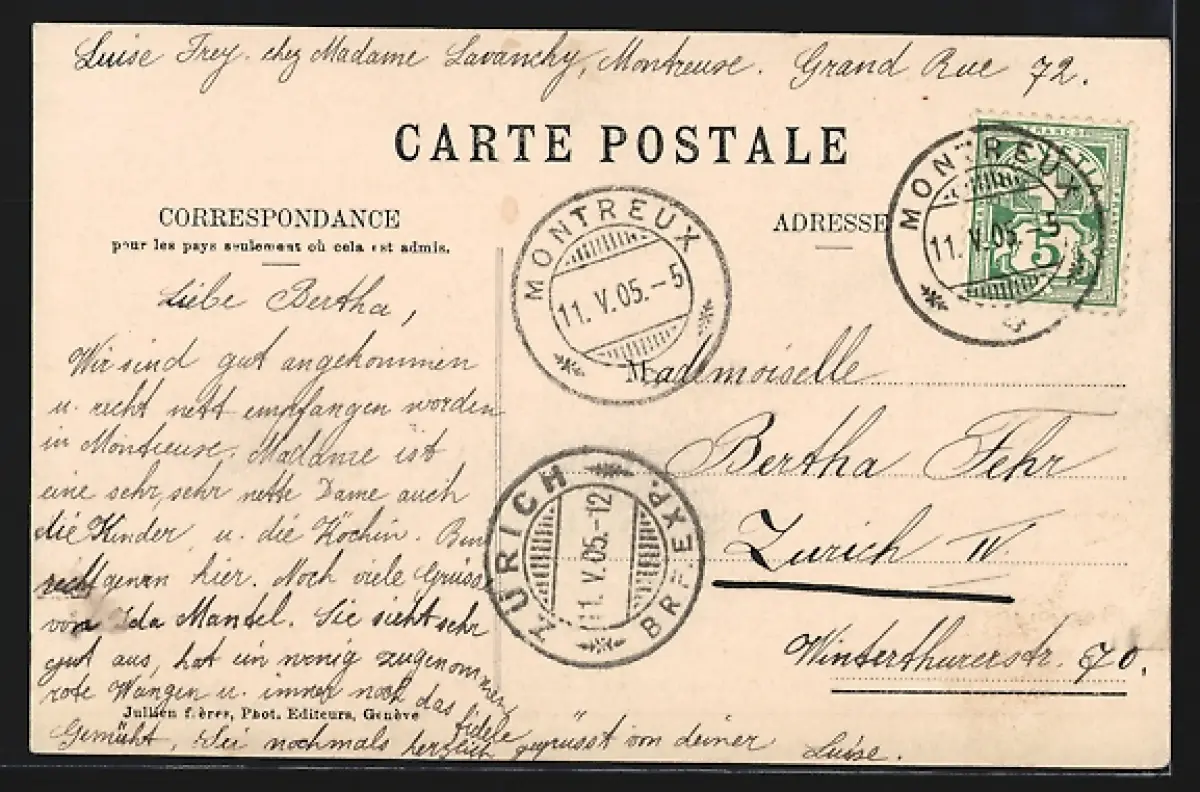 Luise Frey. chez Madame Lavanchy, Montreuse. Grand Rue 72.
CARTE POSTALE
CORRESPONDANCE
pour les pays seulement où cela est admis.
ADRESSE
MONTREUX
11. V. 05. - 5
MONTREUX
11. V. 05. - 5
FRANCO
5
Liebe Bertha,
Wir sind gut angekommen
u. recht nett empfangen worden
in Montreuse. Madame ist
eine sehr, sehr nette Dame auch
die Kinder u. die Köchin. Bin
recht gern hier. Noch viele Grüsse
von Ida Mantel. Sie sieht sehr
gut aus, hat ein wenig zugenommen,
rote Wangen u. immer noch das fidele
Gemüht. Sei nochmals herzlich gegrüsst von deiner Luise.
Mademoiselle
Bertha Fehr
Zurich IV.
Winterthurerstr. 70.
ZÜRICH BRF. EXP.
11. V. 05. - 12
Jullien frères, Phot. Editeurs, Genève